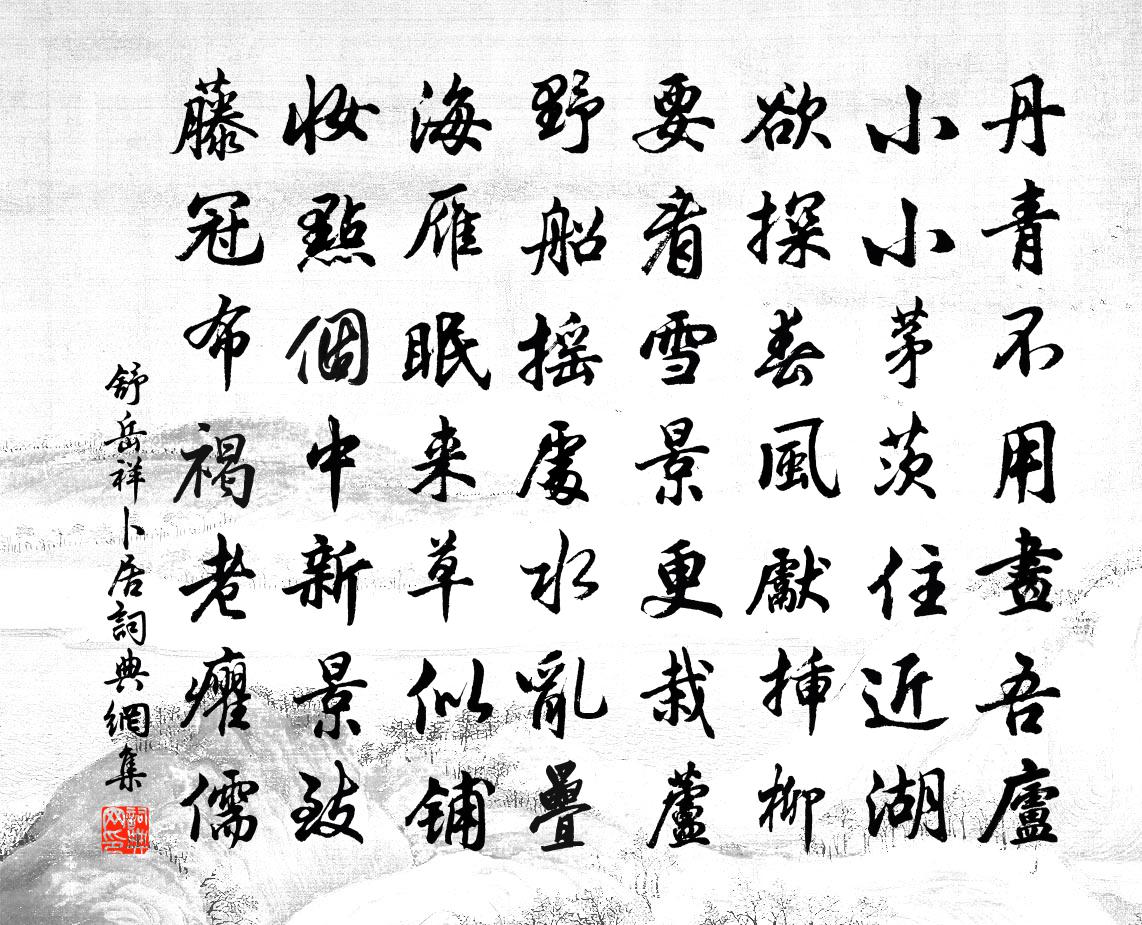 丹青不用畫吾廬
小小茅茨住近湖
欲探春風獻插柳
要看雪景更栽蘆
野船摇處水亂疊
海雁眠来草似铺
妝點個中新景致
藤冠布褐老癯儒
舒岳祥卜居詞典網集